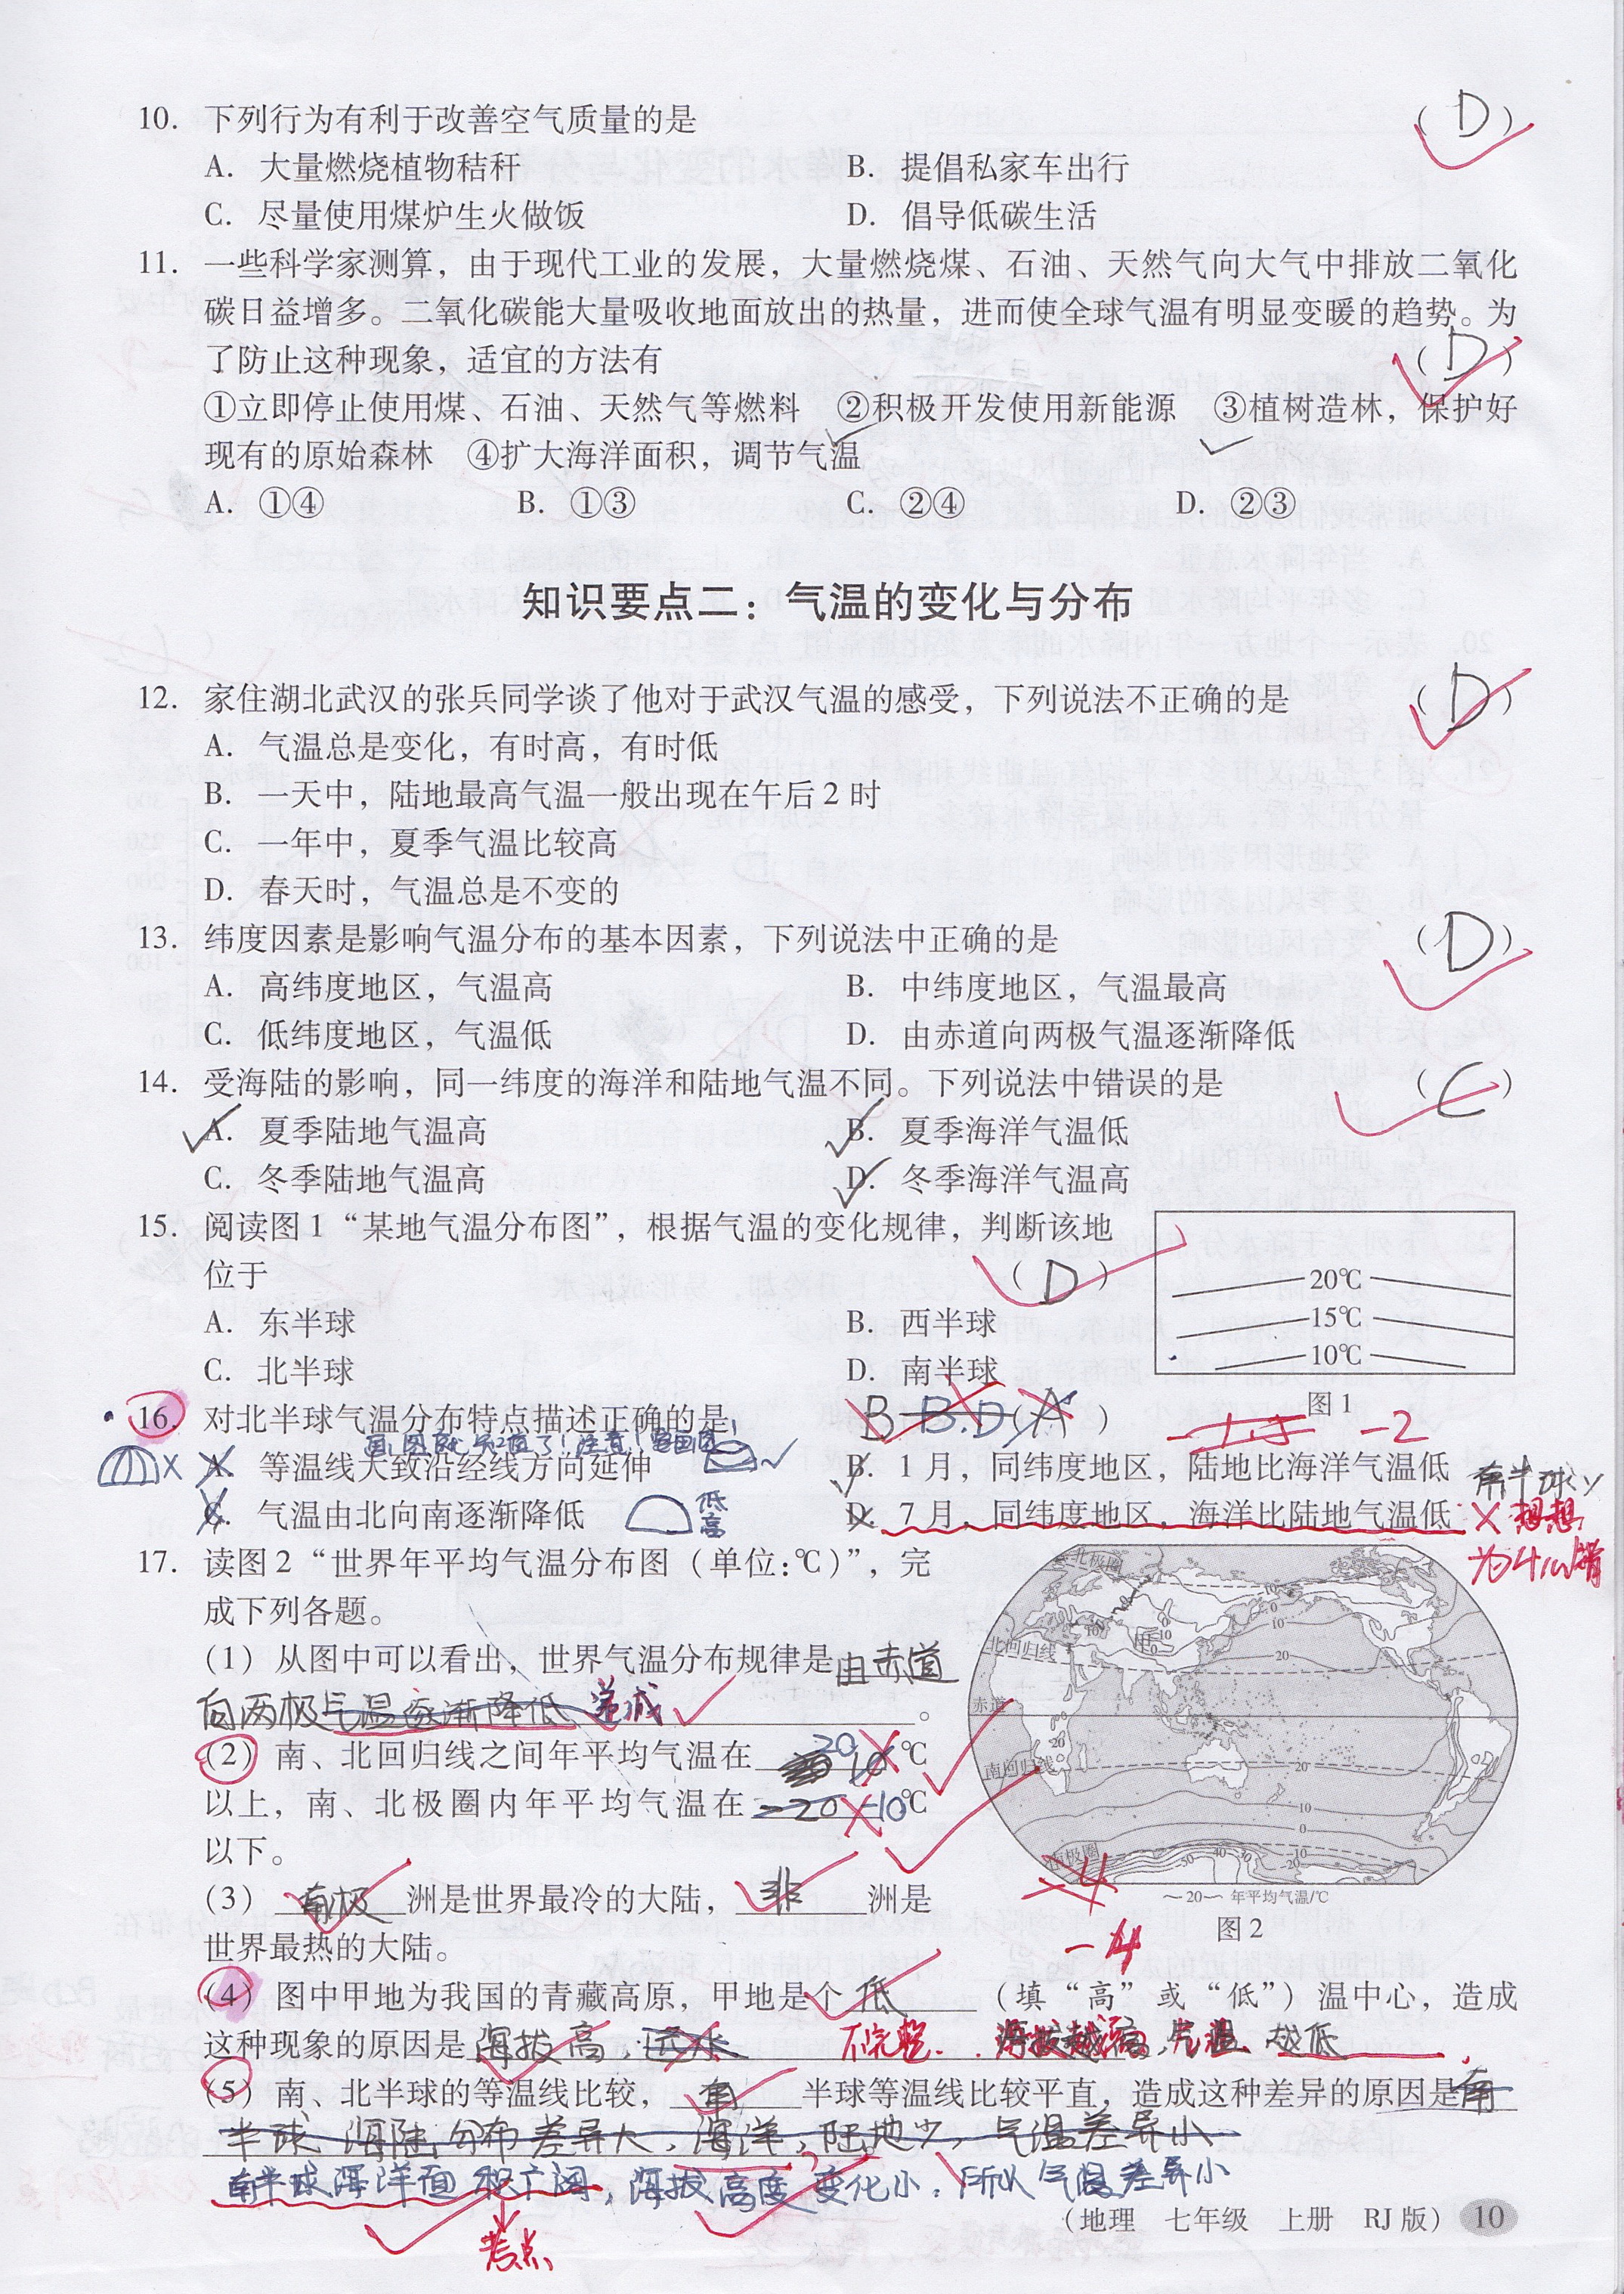 10. 下列行为有利于改善空气质量的是 (D)
A. 大量燃烧植物秸秆 B. 提倡私家车出行
C. 尽量使用煤炉生火做饭 D. 倡导低碳生活
11. 一些科学家测算，由于现代工业的发展，大量燃烧煤、石油、天然气向大气中排放二氧化
碳日益增多。二氧化碳能大量吸收地面放出的热量，进而使全球气温有明显变暖的趋势。为
了防止这种现象，适宜的方法有 (D)
①立即停止使用煤、石油、天然气等燃料 ②积极开发使用新能源 ③植树造林，保护好
现有的原始森林 ④扩大海洋面积，调节气温
A. ①④ B. ①③ C. ②④ D. ②③
知识要点二：气温的变化与分布
12. 家住湖北武汉的张兵同学谈了他对于武汉气温的感受，下列说法不正确的是 (D)
A. 气温总是变化，有时高，有时低
B. 一天中，陆地最高气温一般出现在午后2时
C. 一年中，夏季气温比较高
D. 春天时，气温总是不变的
13. 纬度因素是影响气温分布的基本因素，下列说法中正确的是 (D)
A. 高纬度地区，气温高 B. 中纬度地区，气温最高
C. 低纬度地区，气温低 D. 由赤道向两极气温逐渐降低
14. 受海陆的影响，同一纬度的海洋和陆地气温不同。下列说法中错误的是 (C)
A. 夏季陆地气温高 B. 夏季海洋气温低
C. 冬季陆地气温高 D. 冬季海洋气温高
15. 阅读图1“某地气温分布图”，根据气温的变化规律，判断该地
位于 (D)
A. 东半球 B. 西半球
C. 北半球 D. 南半球
20℃
15℃
10℃
图1
16. 对北半球气温分布特点描述正确的是 B B.D (A)
-1.5 -2
A. 等温线大致沿经线方向延伸 B. 1月，同纬度地区，陆地比海洋气温低
南半球
C. 气温由北向南逐渐降低 低 高 D. 7月，同纬度地区，海洋比陆地气温低 想想
为什么错
17. 读图2“世界年平均气温分布图（单位：℃）”，完
成下列各题。
(1) 从图中可以看出，世界气温分布规律是由赤道
向两极气温逐渐降低 递减。
(2) 南、北回归线之间年平均气温在 20 10 ℃
以上，南、北极圈内年平均气温在 -20 -10 ℃
以下。
(3) 南极 洲是世界最冷的大陆， 非 洲是
世界最热的大陆。
北极圈
北回归线
赤道
南回归线
南极圈
甲
～20～ 年平均气温/℃
图2
-4
-4
(4) 图中甲地为我国的青藏高原，甲地是个 低 （填“高”或“低”）温中心，造成
这种现象的原因是 海拔高， 不完整. 海拔越高，气温越低
(5) 南、北半球的等温线比较， 南 半球等温线比较平直，造成这种差异的原因是南
半球海陆分布差异大，海洋，陆地少，气温差异小
南半球海洋面积广阔，海拔高度变化小，所以气温差异小
考点
（地理 七年级 上册 RJ版） 10